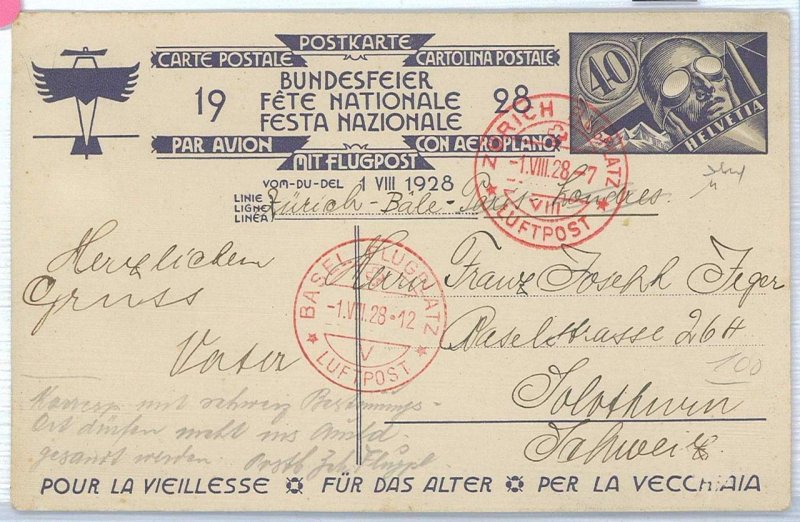 POSTKARTE
CARTE POSTALE CARTOLINA POSTALE
BUNDESFEIER
19 FÊTE NATIONALE 28
FESTA NAZIONALE
PAR AVION CON AEROPLANO
MIT FLUGPOST
40
HELVETIA
VOM-DU-DEL 1 VIII 1928
LINIE
LIGNE
LINEA
Zürich-Bâle-Paris-Londres.
ZÜRICH FLUGPLATZ
-1.VIII.28-7
VIII
LUFTPOST
Herzlichen
Gruss
Vater
BASEL FLUGPLATZ
-1.VIII.28-12
V
LUFTPOST
Herrn Franz Joseph Jeger
Baselstrasse 264
100
Solothurn
Schweiz
Korresp. mit schweiz Bestimmungs-
Ort dürfen nicht ins Ausld.
gesandt werden.
POUR LA VIEILLESSE FÜR DAS ALTER PER LA VECCHIAIA